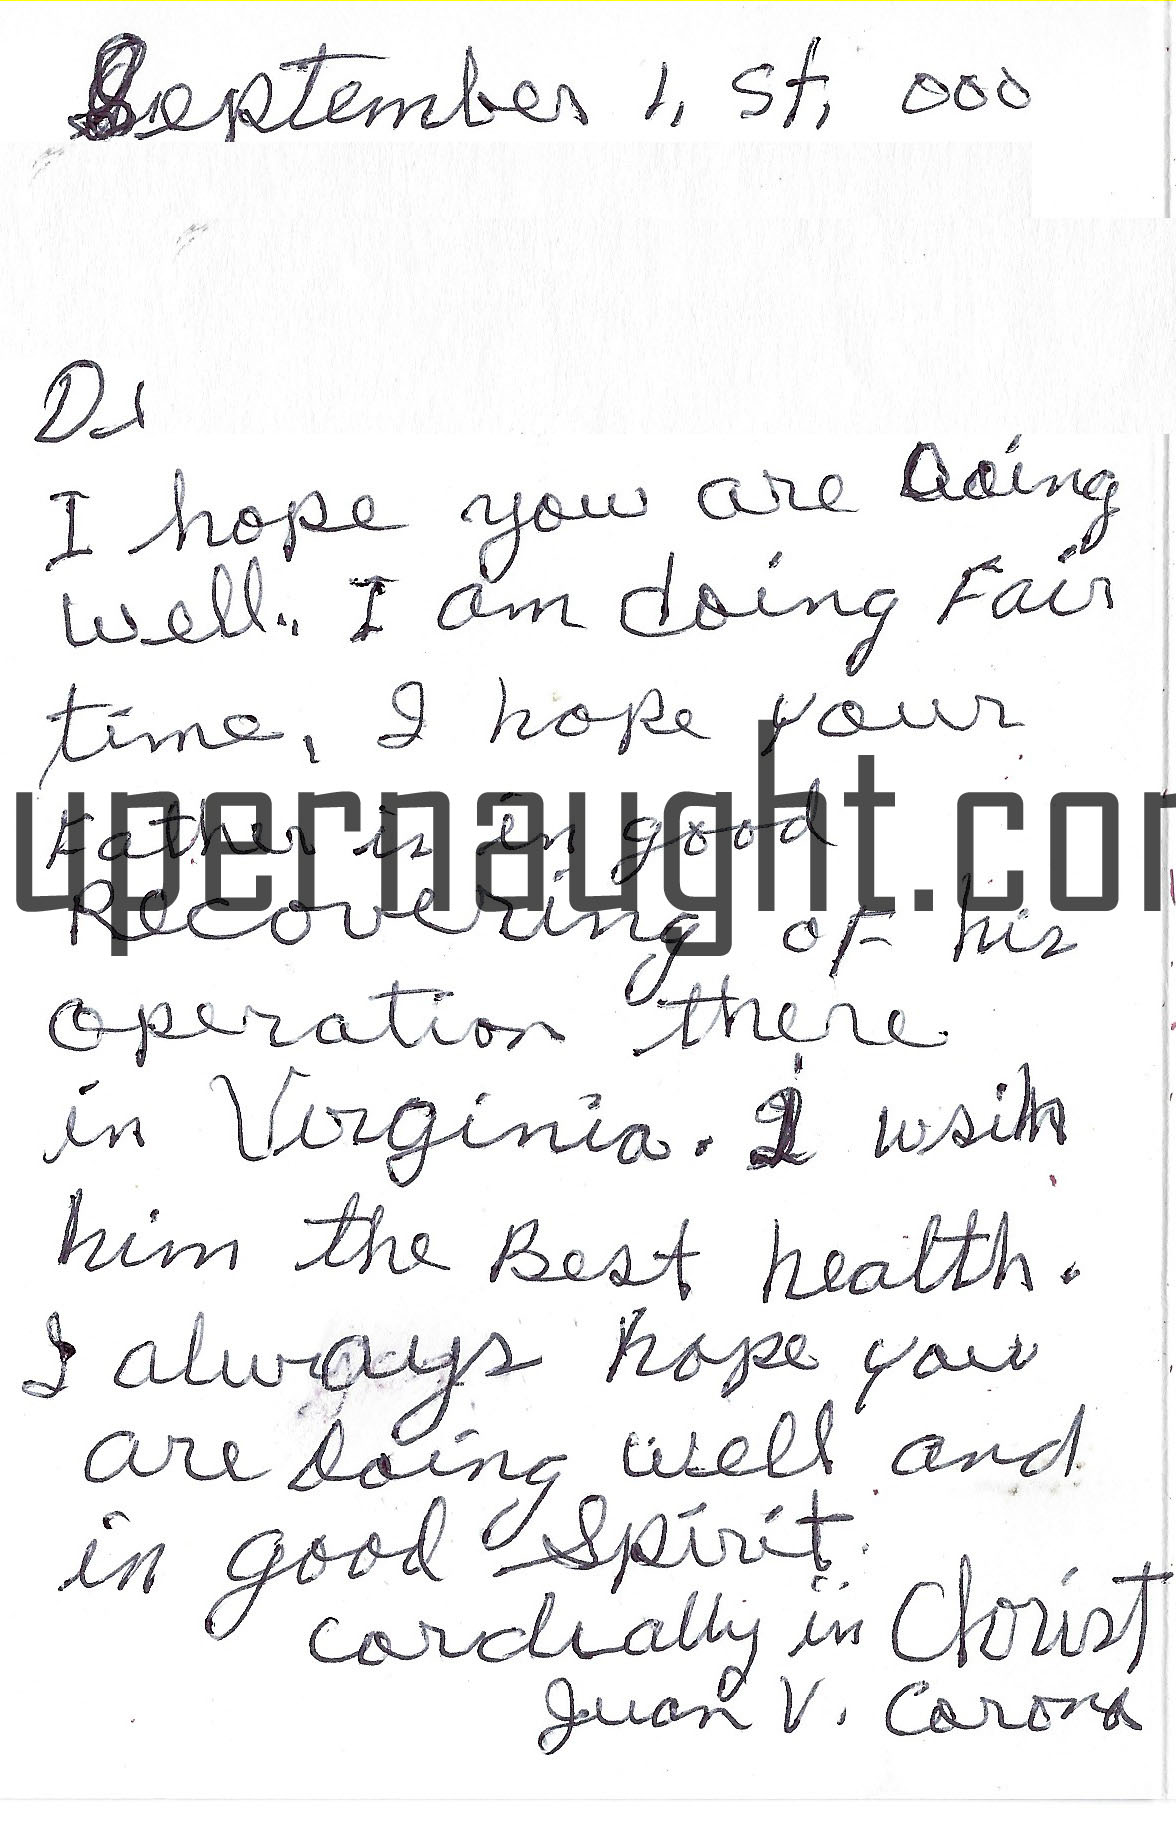 September 1, st, 000
Dr
I hope you are doing
well. I am doing Fair
time, I hope your
Father is in good
upernaught.com
Recovering of his
operation there
in Virginia. I wsih
him the Best health.
I always hope you
are Doing well and
in good Spirit.
cordially in Christ
Juan V. Corona